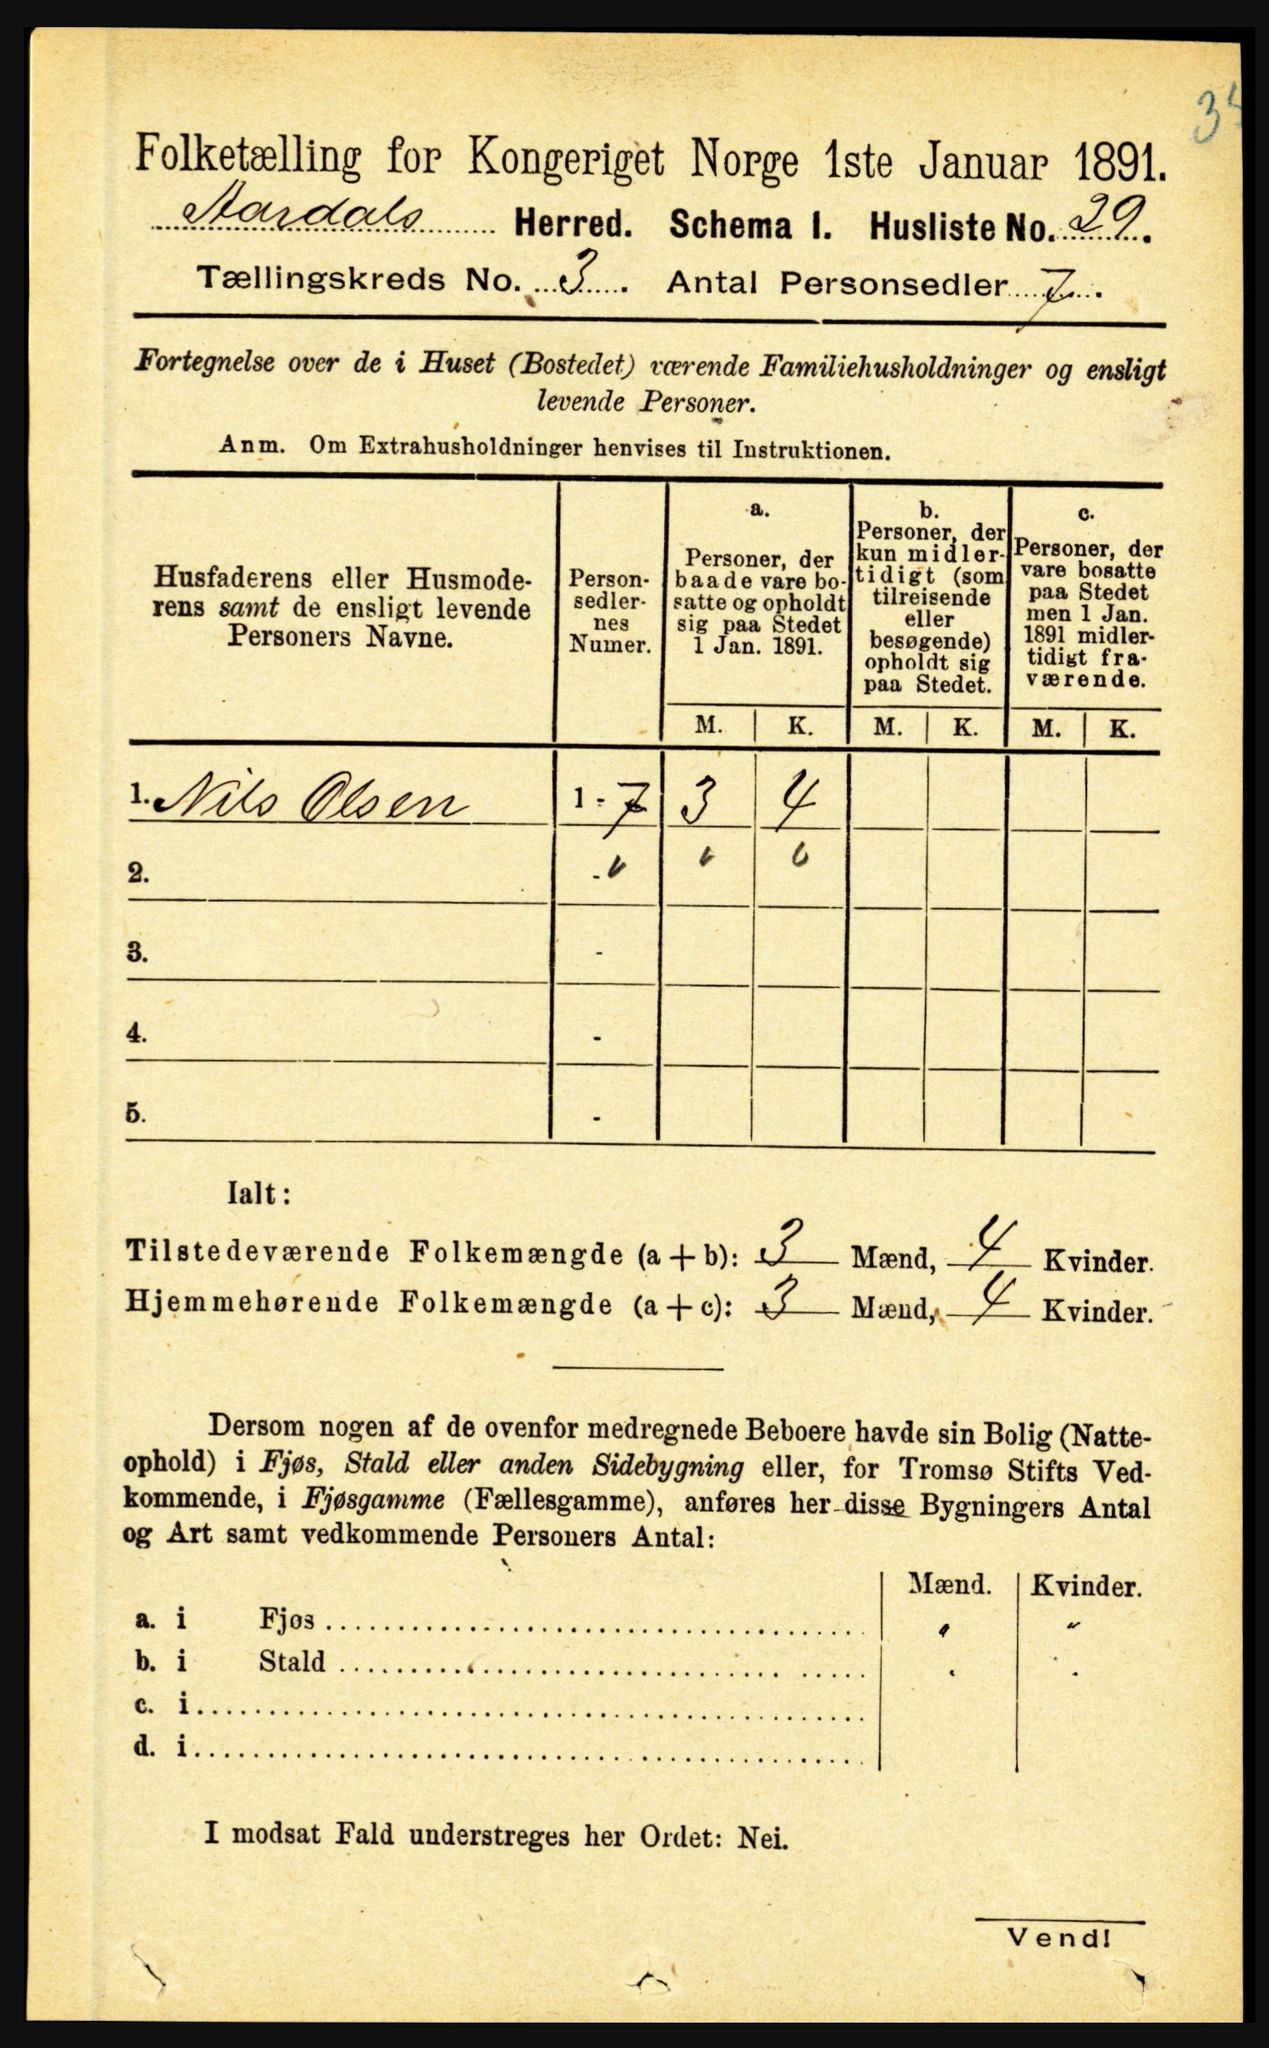 Folketælling for Kongeriget Norge 1ste Januar 1891.
Aardals Herred. Schema I. Husliste No. 29.
Tællingskreds No. 3. Antal Personsedler 7.
Fortegnelse over de i Huset (Bostedet) værende Familiehusholdninger og ensligt
levende Personer.
Anm. Om Extrahusholdninger henvises til Instruktionen.
Husfaderens eller Husmode-
rens samt de ensligt levende
Personers Navne.
Person-
sedler-
nes
Numer.
a.
Personer, der
baade vare bo-
satte og opholdt
sig paa Stedet
1 Jan. 1891.
b.
Personer, der
kun midler-
tidigt (som
tilreisende
eller
besøgende)
opholdt sig
paa Stedet.
c.
Personer, der
vare bosatte
paa Stedet
men 1 Jan.
1891 midler-
tidigt fra-
værende.
M. K. M. K. M. K.
1. Nils Olsen 1 - 7 3 4
2. -
3. -
4. -
5. -
Ialt:
Tilstedeværende Folkemængde (a + b): 3 Mænd, 4 Kvinder.
Hjemmehørende Folkemængde (a + c): 3 Mænd, 4 Kvinder.
Dersom nogen af de ovenfor medregnede Beboere havde sin Bolig (Natte-
ophold) i Fjøs, Stald eller anden Sidebygning eller, for Tromsø Stifts Ved-
kommende, i Fjøsgamme (Fællesgamme), anføres her disse Bygningers Antal
og Art samt vedkommende Personers Antal:
Mænd. Kvinder.
a. i Fjøs
b. i Stald
c. i
d. i
I modsat Fald understreges her Ordet: Nei.
Vend!